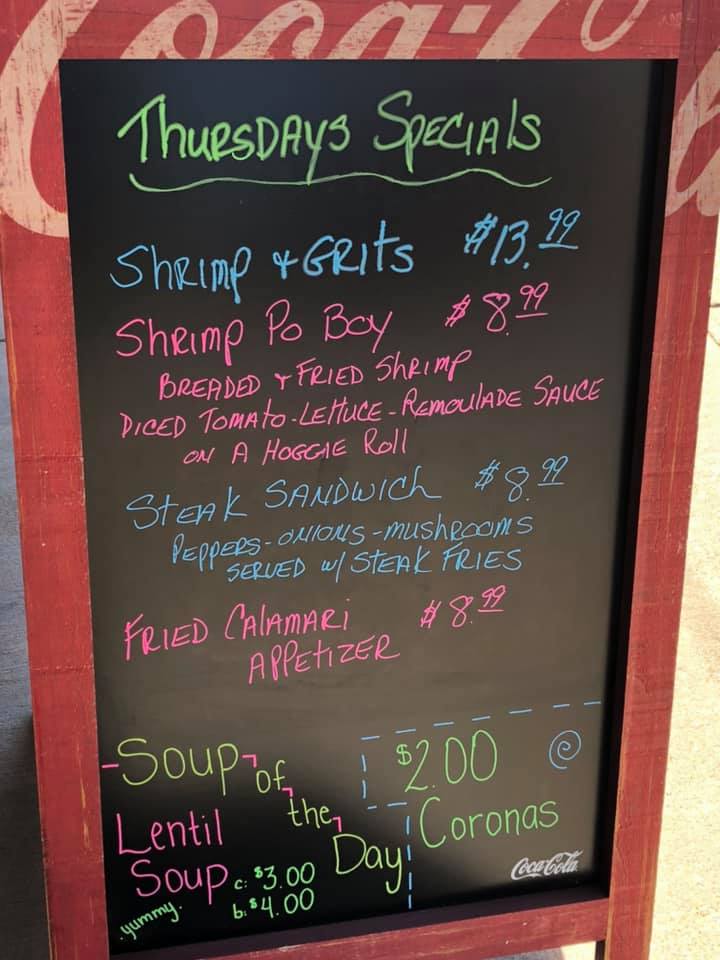 Coca-Cola
Thursdays Specials
Shrimp & Grits $13.99
Shrimp Po Boy $8.99
Breaded & Fried Shrimp
Diced Tomato - Lettuce - Remoulade Sauce
on A Hoggie Roll
Steak Sandwich $8.99
Peppers - onions - mushrooms
Served w/ Steak Fries
Fried Calamari $8.99
Appetizer
-Soup of the Day!
Lentil
Soup c: $3.00
b: $4.00
yummy.
$2.00
Coronas
Coca-Cola